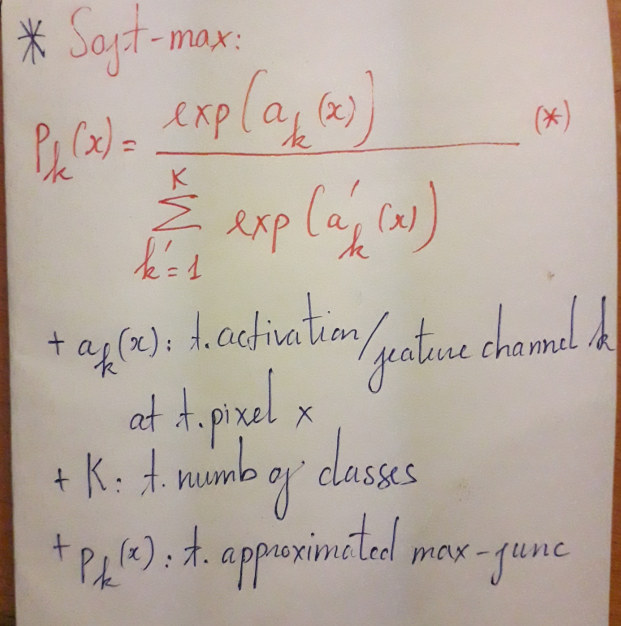 * Soft-max:
P_k(x) = exp(a_k(x)) / Σ_{k'=1}^{K} exp(a'_k(x)) (*)
+ a_k(x): t. activation/feature channel k
at t. pixel x
+ K: t. numb of classes
+ p_k(x): t. approximated max-func